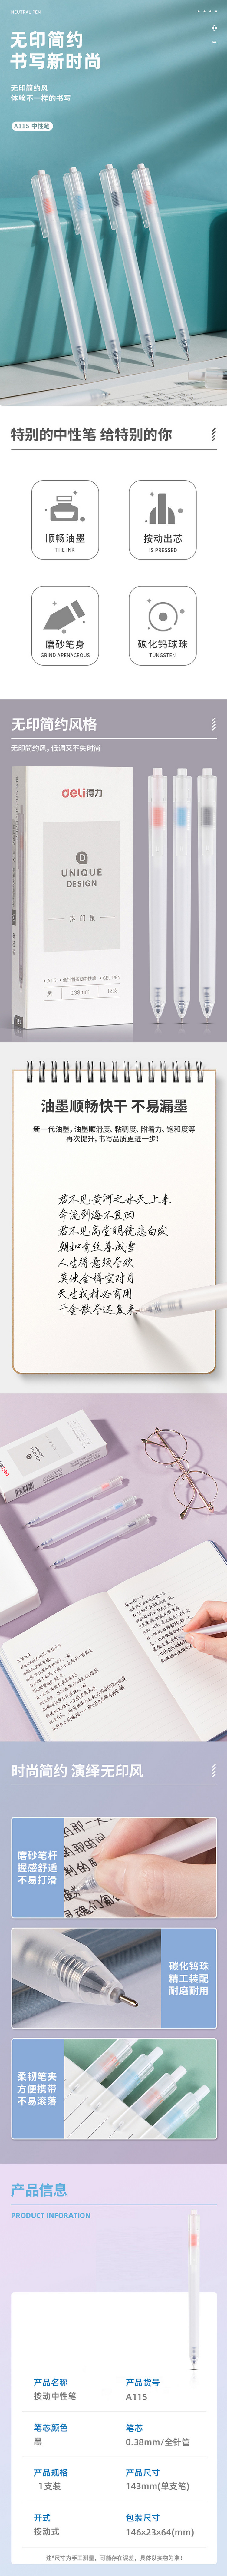 NEUTRAL PEN
无印简约
书写新时尚
无印简约风
体验不一样的书写
A115 中性笔
特别的中性笔 给特别的你
顺畅油墨
THE INK
按动出芯
IS PRESSED
磨砂笔身
GRIND ARENACEOUS
碳化钨球珠
TUNGSTEN
无印简约风格
无印简约风，低调又不失时尚
deli得力
UNIQUE
DESIGN
素印集
0.38mm
12支
油墨顺畅快干 不易漏墨
新一代油墨，油墨顺滑度、粘稠度、附着力、饱和度等
再次提升，书写品质更进一步！
君不见黄河之水天上来
奔流到海不复回
君不见高堂明镜悲白发
朝如青丝暮成雪
人生得意须尽欢
莫使金樽空对月
天生我材必有用
千金散尽还复来
时尚简约 演绎无印风
磨砂笔杆
握感舒适
不易打滑
碳化钨珠
精工装配
耐磨耐用
柔韧笔夹
方便携带
不易滚落
产品信息
PRODUCT INFORATION
产品名称
按动中性笔
产品货号
A115
笔芯颜色
黑
笔芯
0.38mm/全针管
产品规格
1支装
产品尺寸
143mm(单支笔)
开式
按动式
包装尺寸
146×23×64(mm)
注*尺寸为手工测量，可能存在误差，具体以实物为准！